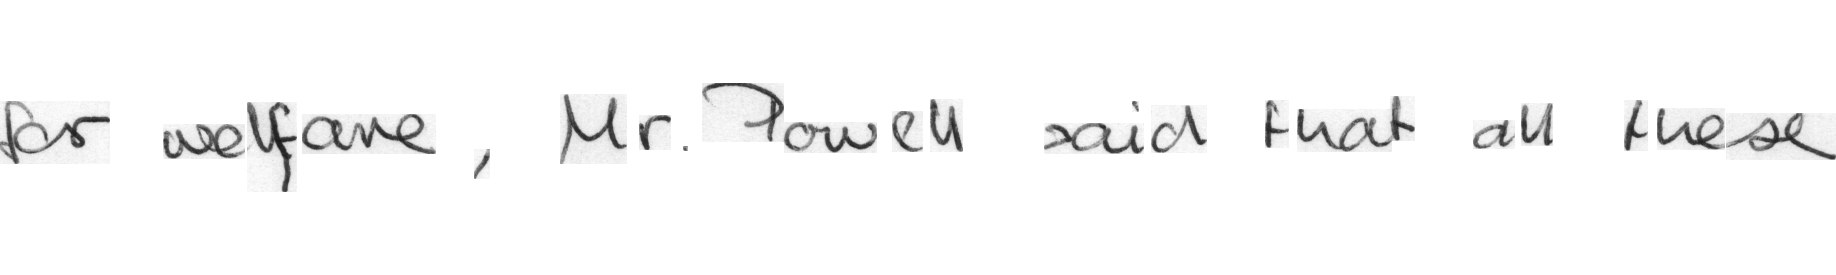 for welfare, Mr. Powell said that all these